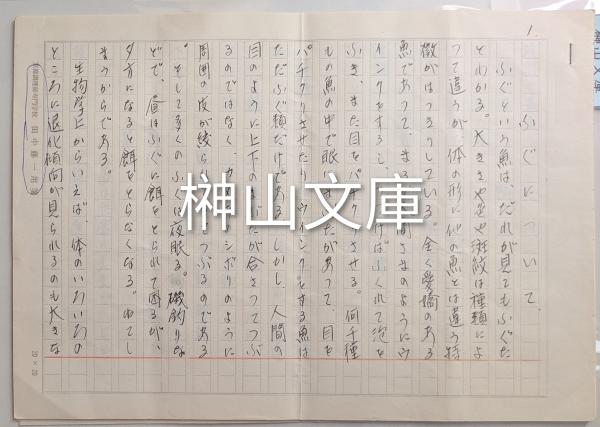 1.
ふぐについて、
ふぐという魚は、だれが見てもふぐだ
とわかる。大きさや色や斑紋は種類によ
って違うが、体の形に他の魚とは違う特
徴がはっきりしている。全く愛嬌のある
魚であって、まる
さまのようにウ
インクをするし、
ばふくれて泡を
ふき、また目をパチ
させる。何千種
もの魚の中で眼
たがあって、目を
パチクリさせたりウインクをする魚は
ただふぐ類だけである。しかし、人間の
目のように上下のま
たが合さってつぶ
るのではなく、カ
シボリのように
周囲の皮が絞ら
つぶるのである
。そして多くのふぐは夜眠る。磯釣りな
どで、昼はふぐに餌をとられて困るが、
夕方になると餌をとらなくなる。ねてし
まうからである。
生物学上からいえば、体のいろいろの
ところに退化傾向が見られるのも大きな
榊山文庫
20×20